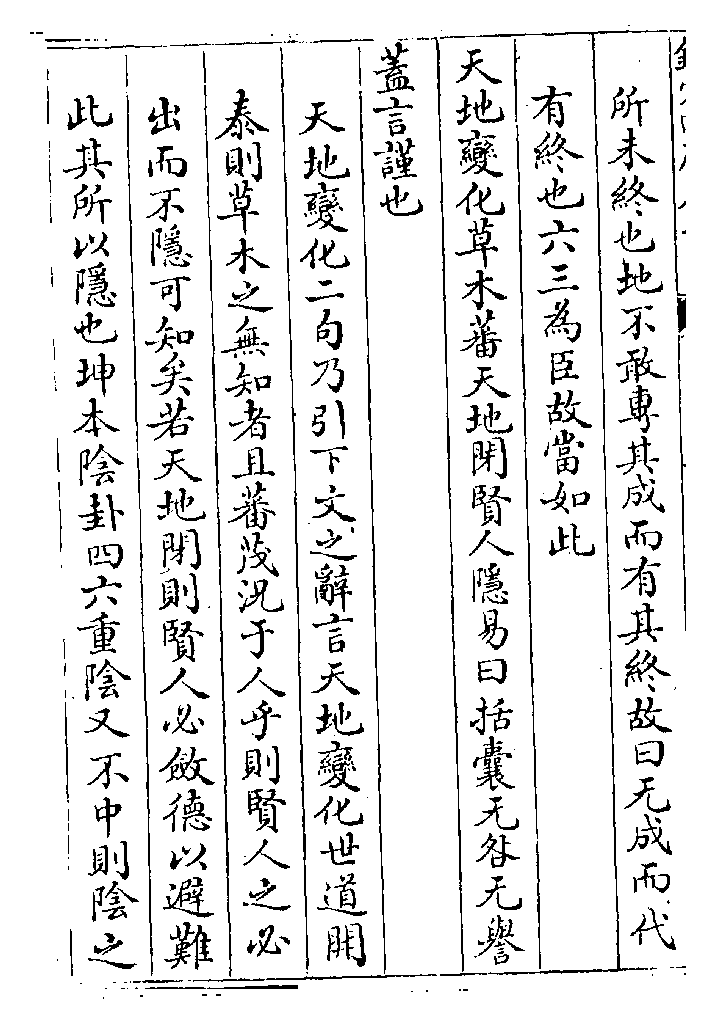 所未終也地不敢專其成而有其終故曰无成而代
有終也六三為臣故當如此
天地變化草木蕃天地閉賢人隱易曰括囊无咎无譽
蓋言謹也
天地變化二句乃引下文之辭言天地變化世道開
泰則草木之無知者且蕃茂況于人乎則賢人之必
出而不隱可知矣若天地閉則賢人必斂德以避難
此其所以隱也坤本陰卦四六重陰又不中則陰之